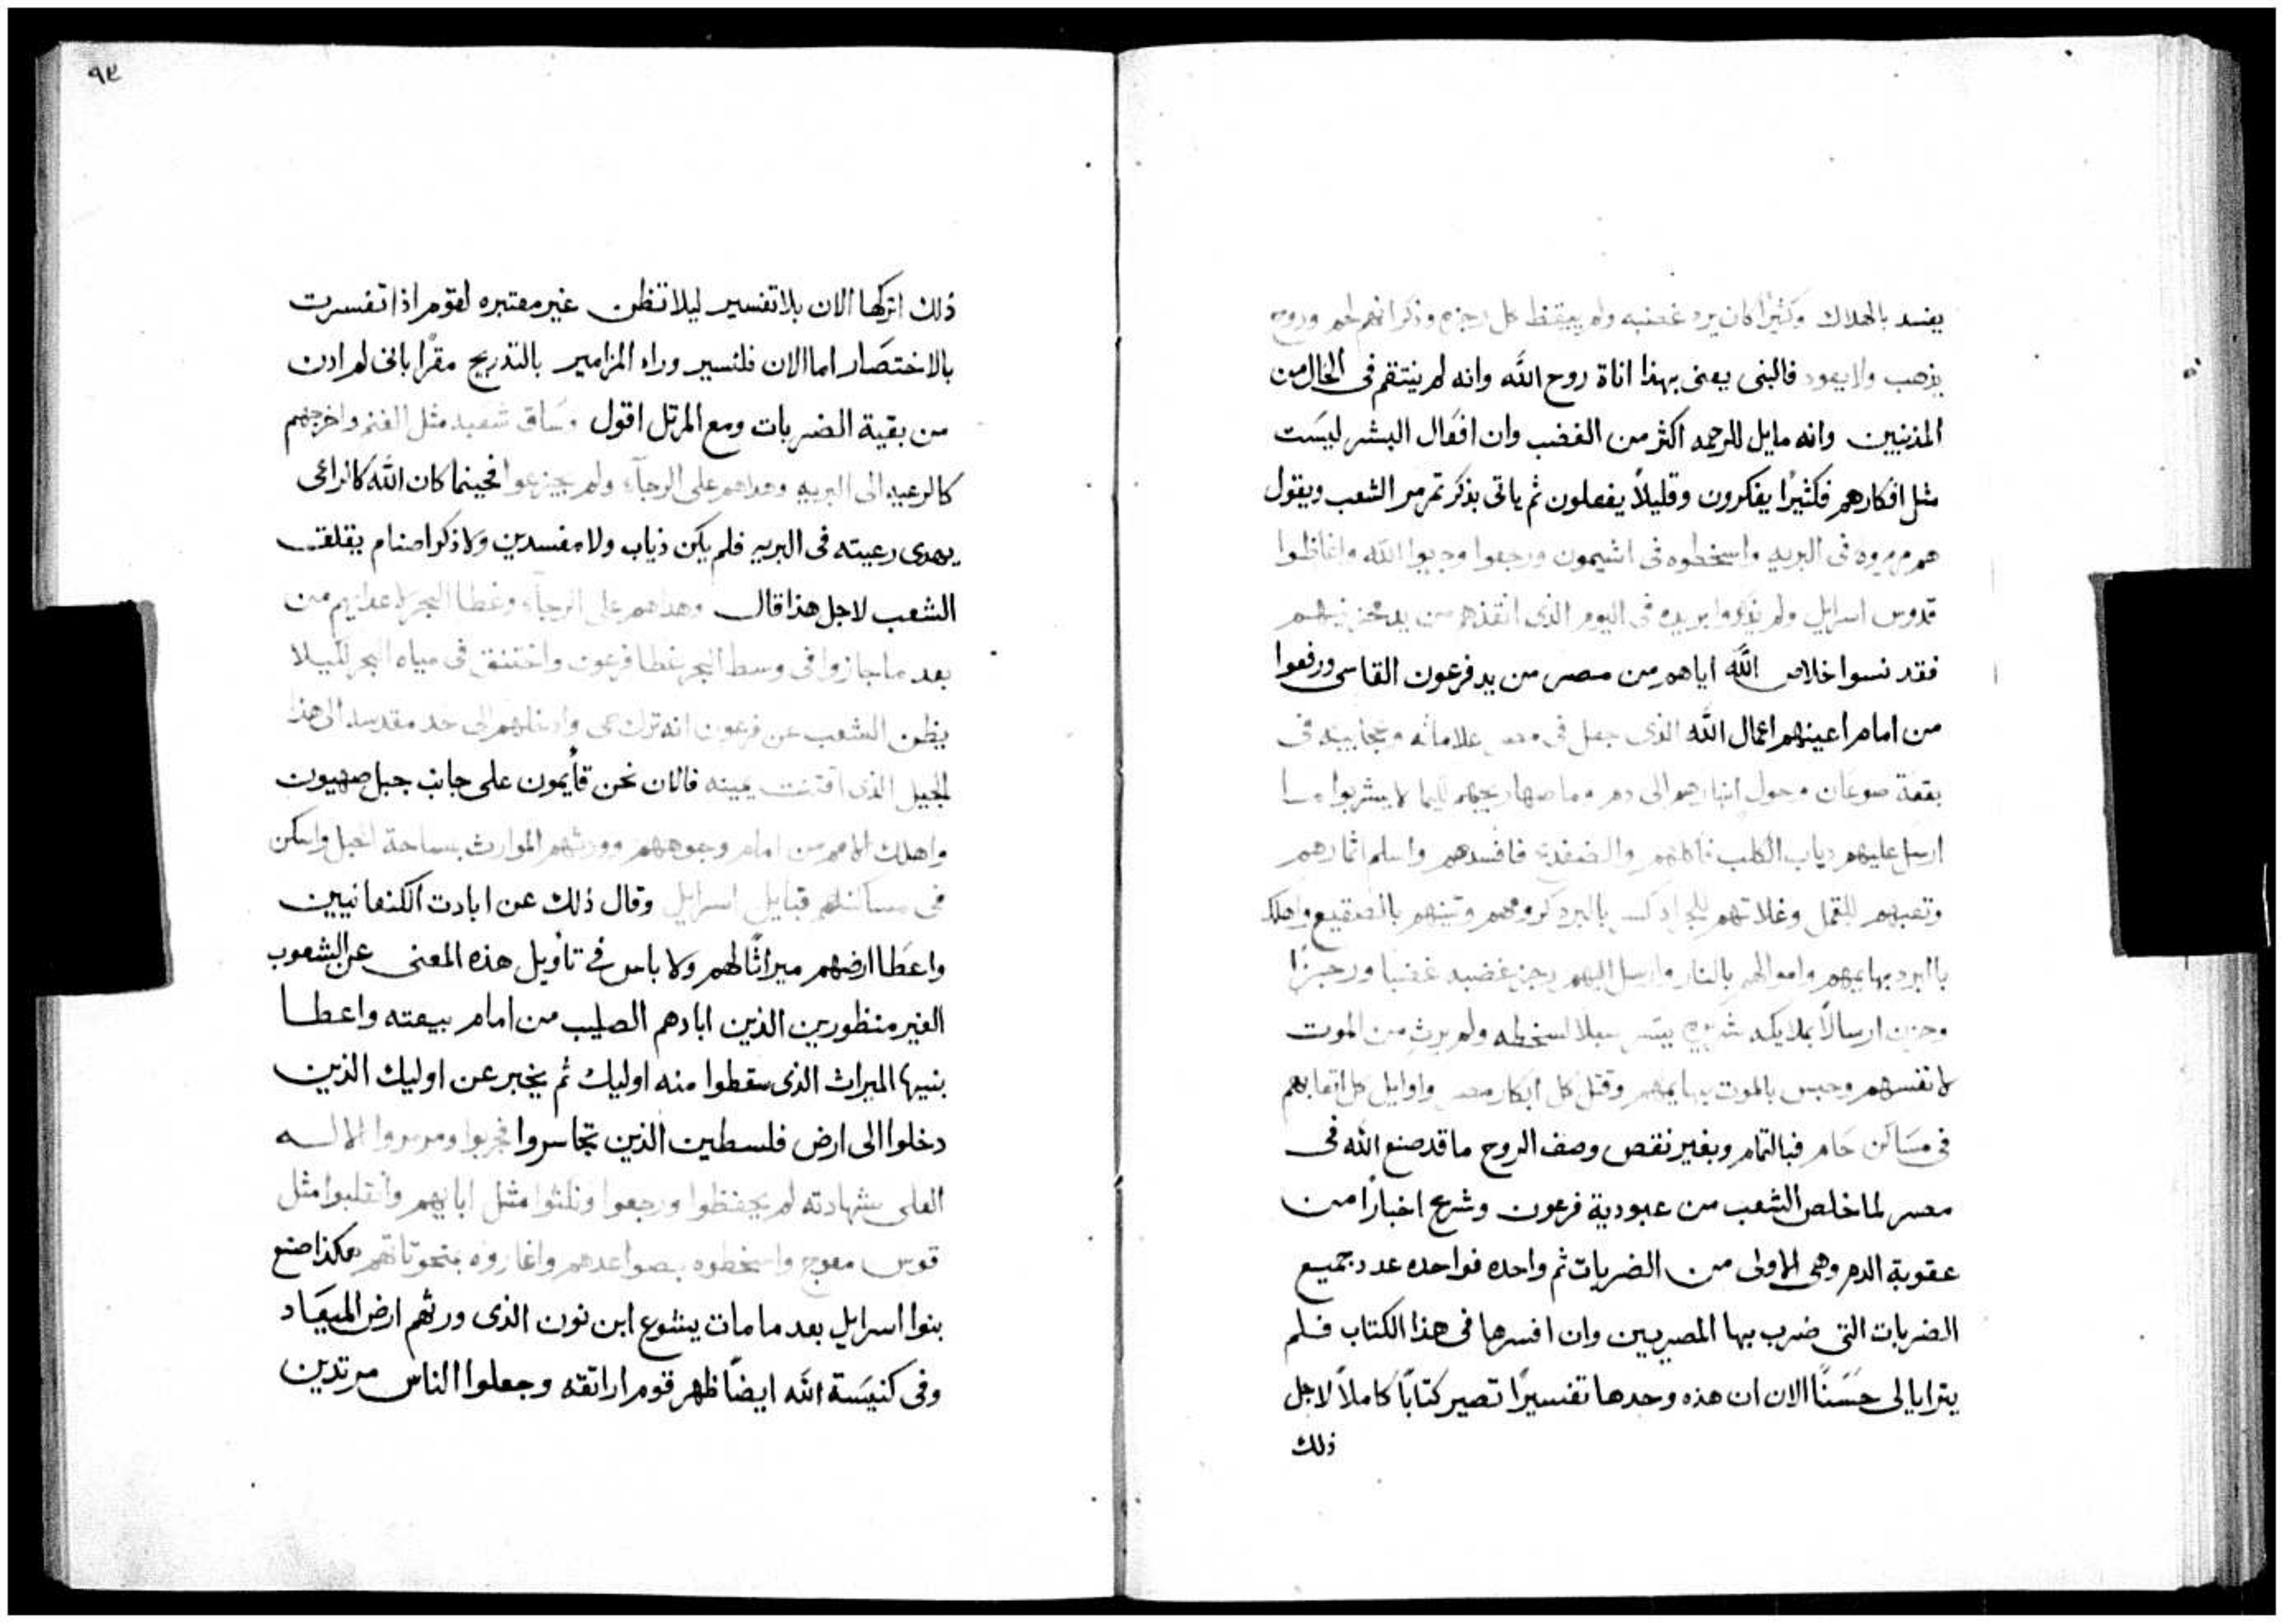 يفسد بالهلاك وكثيرًا كان يرد غضبه ولم ييقظ كل رجزه وذكر انهم لحم وروح
يذهب ولا يعود فالنبى يعنى بهذا اناة روح الله وانه لم ينتقم فى الحال من
المذنبين وانه مايل للرحمه اكثر من الغضب وان افعال البشر ليست
مثل افكارهم فكثيرًا يفكرون وقليلاً يفعلون ثم ياتى بذكر تمرمر الشعب ويقول
هم مرمروه فى البريه واسخطوه فى اشيمون ورجعوا وجربوا الله واغاظوا
قدوس اسرايل ولم يذكروا يده فى اليوم الذى انقذهم من يد محزنيهم
فقد نسوا خلاص الله اياهم من مصر من يد فرعون القاسى ورفعوا
من امام اعينهم اعمال الله الذى جعل فى مصر علاماته وعجايبه فى
بقعة صوعان وحول انهارهم الى دم وما صهاريجهم ليما لا يشربوا
ارسل عليهم دباب الكلب فاكلهم والضفدع فافسدهم واسلم اثمارهم
وتعبهم للقمل وغلاتهم للجراد كسر بالبرد كرومهم وتينهم بالصقيع واهلك
باالبرد بهايمهم واموالهم بالنار وارسل اليهم رجز غضبه غضبا ورجزًا
وحزن ارسالاً بملايكه شريره سبلا لسخطه ولم يرث من الموت
لانفسهم وحبس بالموت بهايمهم وقتل كل ابكار مصر واوايل كل اتعابهم
فى مساكن حام فبالتمام وبغير نقص وصف الروح ما قد صنع الله فى
مصر لما خلص الشعب من عبودية فرعون وشرح اخبارًا من
عقوبة الدم وهى الاولى من الضربات ثم واحده فواحده عدد جميع
الضربات التى ضرب بها المصريين وان افسرها فى هذا الكتاب فلم
يترايا لى حَسَنًا الان ان هذه وحدها تفسيرًا تصير كتابًا كاملاً لاجل
ذلك
٩٤
ذلك اتركها الان بلا تفسير ليلا تظن غير معتبره لقوم اذا تفسرت
بالاختصار اما الان فلنسير وراه المزامير بالتدريج مقرًا بانى لم ادن
من بقية الضربات ومع المرتل اقول وساق شعبه مثل الغنم واخرجهم
كالرعيه الى البريه وهداهم على الرجآء ولم يجزعوا فحينما كان الله كالراعى
يهدى رعيته فى البريه فلم يكن ذياب ولا مفسدين ولا ذكر اصنام يقلق
الشعب لاجل هذا قال وهداهم على الرجآء وغطا البحر لاعدايهم من
بعد ما جازوا فى وسط البحر غطا فرعون واختنق فى مياه البحر لكيلا
يظن الشعب عن فرعون انه ترك حى وادخلهم الى حد مقدسه الى هذا
الجبل الذى اقتنت يمينه فالان نحن قايمون على جانب جبل صهيون
واهلك الامم من امام وجوههم وورثهم الموارث بساحة الحبل واسكن
فى مساكنهم قبايل اسرايل وقال ذلك عن ابادت الكنعانيين
واعطا ارضهم ميراثًا لهم ولا باس فى تأويل هذه المعنى عن الشعوب
الغير منظورين الذين ابادهم الصليب من امام بيعته واعطا
بنيها الميراث الذى سقطوا منه اوليك ثم يخبر عن اوليك الذين
دخلوا الى ارض فلسطين الذين تجاسروا فجربوا ومرمروا الاله
العلى شهادته لم يحفظوا ورجعوا ونكثوا مثل ابايهم وانقلبوا مثل
قوس معوج واسخطوه بصواعدهم واغاروه بمنحوتاتهم هكذا صنع
بنوا اسرايل بعد ما مات يشوع ابن نون الذى ورثهم ارض الميعاد
وفى كنيسة الله ايضًا ظهر قوم اراتقه وجعلوا الناس مرتدين